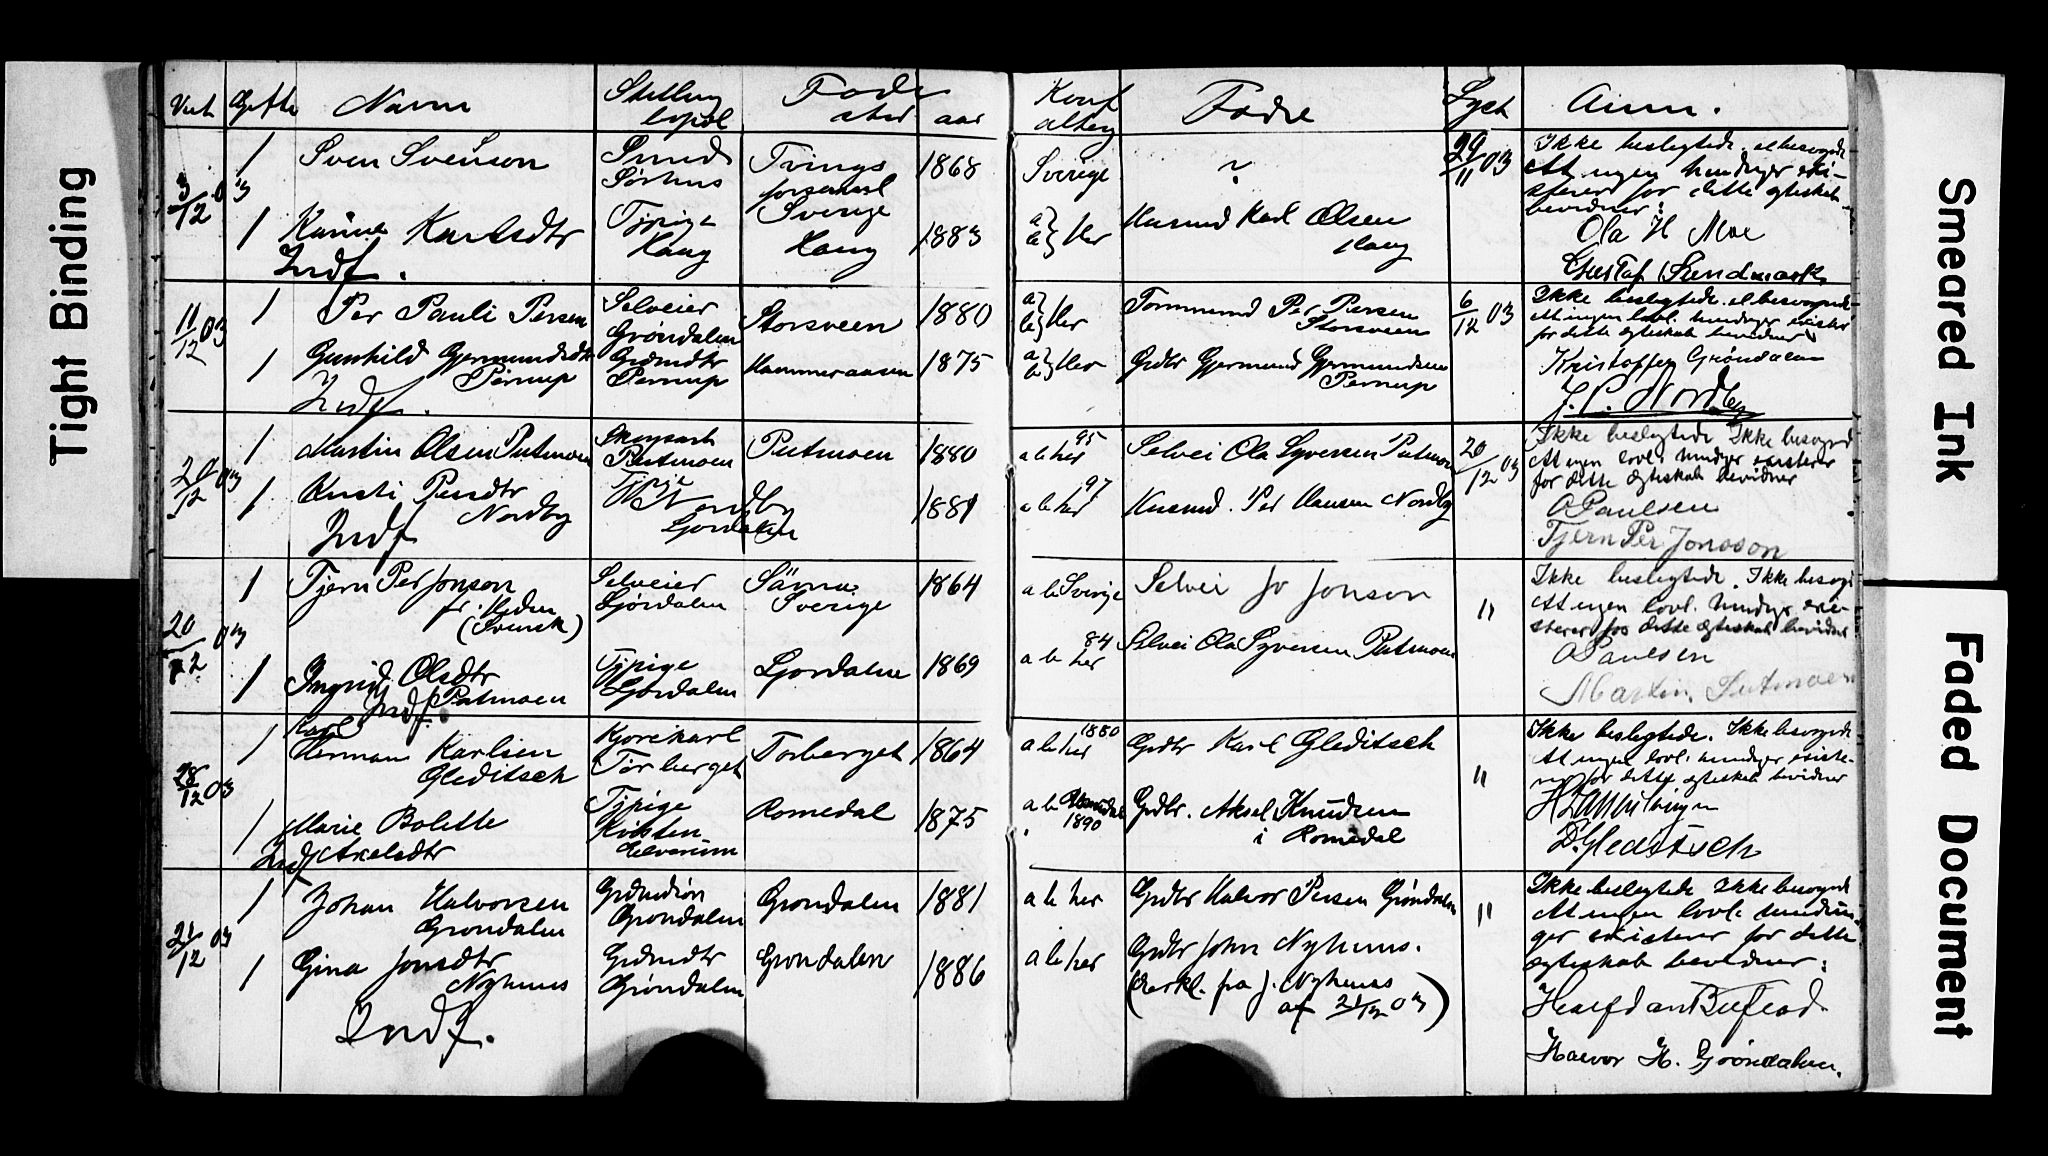 Tight Binding
Smeared Ink
Faded Document
Viet Gifte Navn Stilling bopæl Føde sted aar Konf attest Fædre Lyst Anm.
3/12 03
1 Sven Svenson Smed Sørhus Tvings forsaml Sverige 1868 Sverige ? 29/11 03
Ikke beslegtede el besvogrede
At ingen hindringer exi-
sterer for dette egteskab
bevidner:
Ola H Moe
Gustaf Sundmark
1 Karine Karlsdtr Tjpige Haug Haug 1883 a) b) Her Husmd Karl Olsen Haug
Indf.
11/12 03
1 Per Pauli Persen Selveier Grøndalen Storsveen 1880 a) b) Her Tommermd Per Persen Storsveen 6/12 03
Ikke beslegtede el besvogrede
At ingen lovl. hindringer exister
for dette egteskab bevidner
Kristoffer Grøndalen
J. P. Nordby
1 Gunhild Gjermundsdtr Pernup Grdmdtr Pernup Hammeraasen 1875 a) b) Her Grdbr Gjermund Gjermundsen Pernup
Indf.
20/12 03
1 Martin Olsen Putmoen Skogsarb Putmoen Putmoen 1880 a b her 95 Selvei Ola Syversen Putmoen 20/12 03
Ikke beslegtede Ikke besvogred
At ingen lovl. hindger exsisterer
for dette egteskab bevidner
O Paulsen
Tjern Per Jonsson
1 Kristi Persdtr Nordby Tjpige Nordby Ljordalen 1881 a b her 97 Husmd. Per Hansen Nordby
Indf
20/12 03
1 Tjern Per Jonson fr. Heden (Svensk) Selveier Ljørdalen Särna Sverige 1864 a b Sverige Selvei Jo Jonson "
Ikke beslegtede. Ikke besvogr
At ingen lovl. hindrgr exi-
sterer for dette egteskab bevidner
O Paulsen
Martin Putmoen
1 Ingrid Olsdtr Putmoen Tjpige Ljordalen Ljordalen 1869 a b her 84 Selvei Ola Syversen Putmoen
Indf.
28/12 03
1 Karl Herman Karlsen Gleditsch Kjørekarl Tørberget Torberget 1864 a b her 1880 Grdbr Karl Gleditsch "
Ikke beslegtede. Ikke besvogrede
At ingen lovl. hindrger existe-
rer for dette egteskab bevidner
D. Gleditsch
1 Marie Bolette Axelsdtr Tjpige Kirsten Elverum Romedal 1875 a b Romedal 1890 Grdbr. Aksel Knudsen i Romedal
Indf
21/12 03
1 Johan Halvorsen Grondalen Grdmdsøn Grondalen Grondalen 1881 a b her Grdbr Halvor Persen Grøndalen "
Ikke beslegtede Ikke besvogrede
At ingen lovl. hindrin-
ger existerer for dette
egteskab bevidner:
Halfdan Bufład
Halvor H. Grøndalen.
1 Gina Jonsdtr Nyhuus Grdmdtr Grøndalen Grondalen 1886 a b her Grdbr John Nyhuus.
(Erkl. fra J. Nyhuus
af 21/12 03)
Indf.